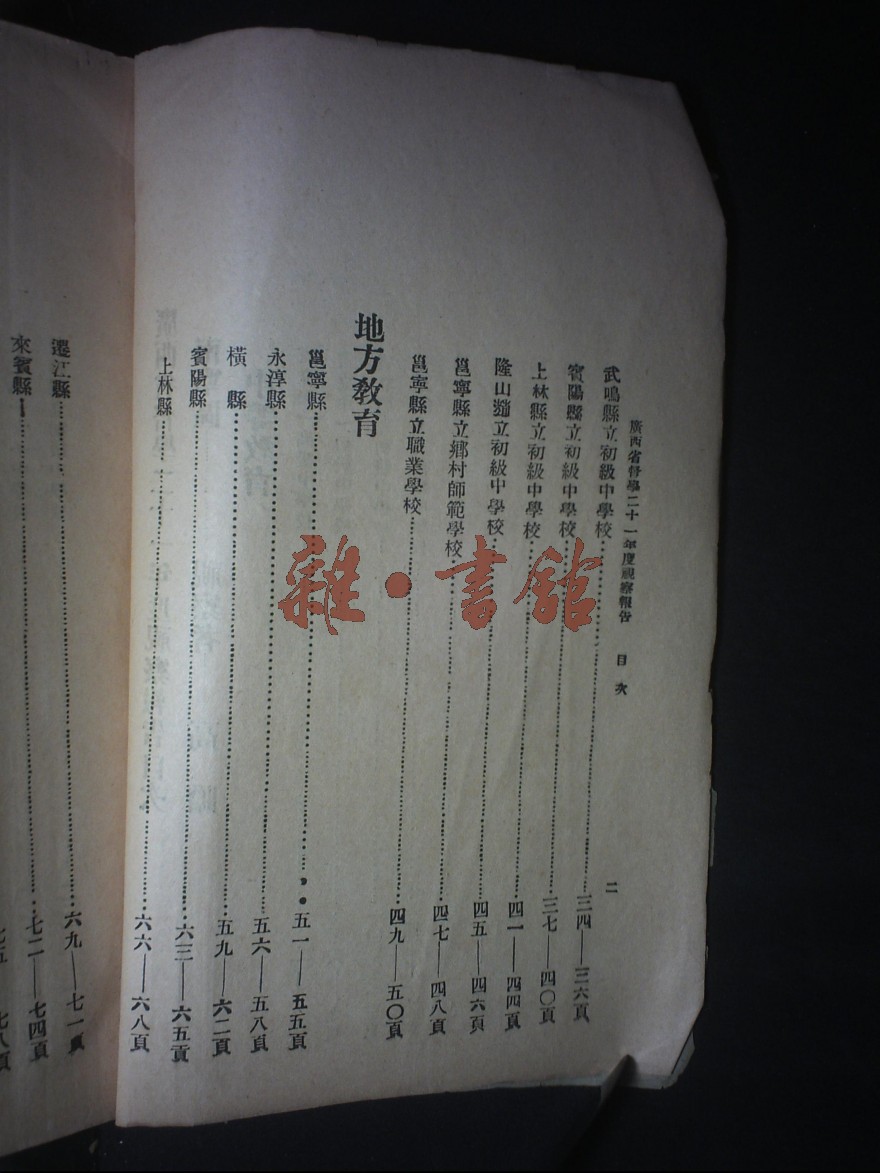 廣西省督學二十一年度視察報告 目次 二
武鳴縣立初級中學校 三四——三六頁
賓陽縣立初級中學校 三七——四〇頁
上林縣立初級中學校 四一——四四頁
隆山縣立初級中學校 四五——四六頁
邕寧縣立鄉村師範學校 四七——四八頁
邕寧縣立職業學校 四九——五〇頁
地方敎育
邕寧縣 五一——五五頁
永淳縣 五六——五八頁
橫縣 五九——六二頁
賓陽縣 六三——六五頁
上林縣 六六——六八頁
遷江縣 六九——七一頁
來賓縣 七二——七四頁
七八頁
雜·書館